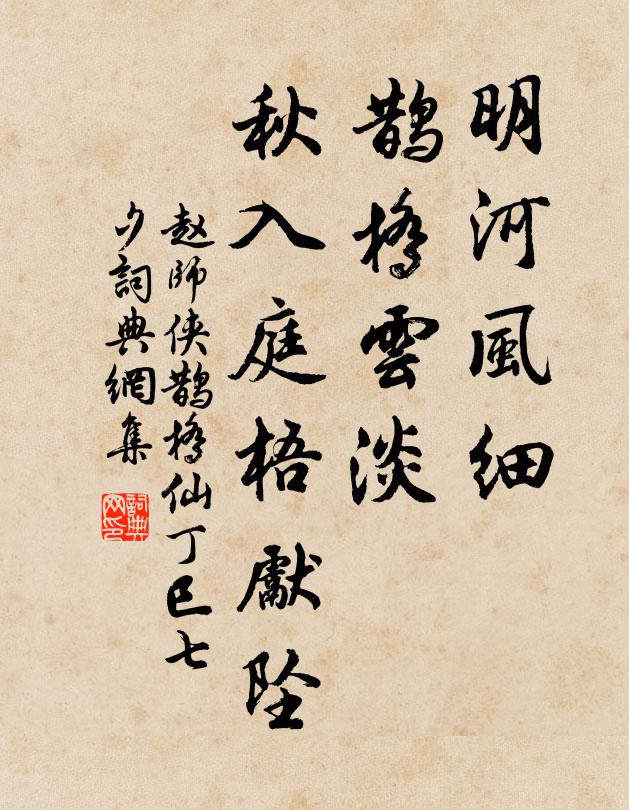 明河風細
鵲橋雲淡
秋入庭梧獻坠
赵師侠鵲橋仙丁巳七
夕詞典網集
詞典
网印